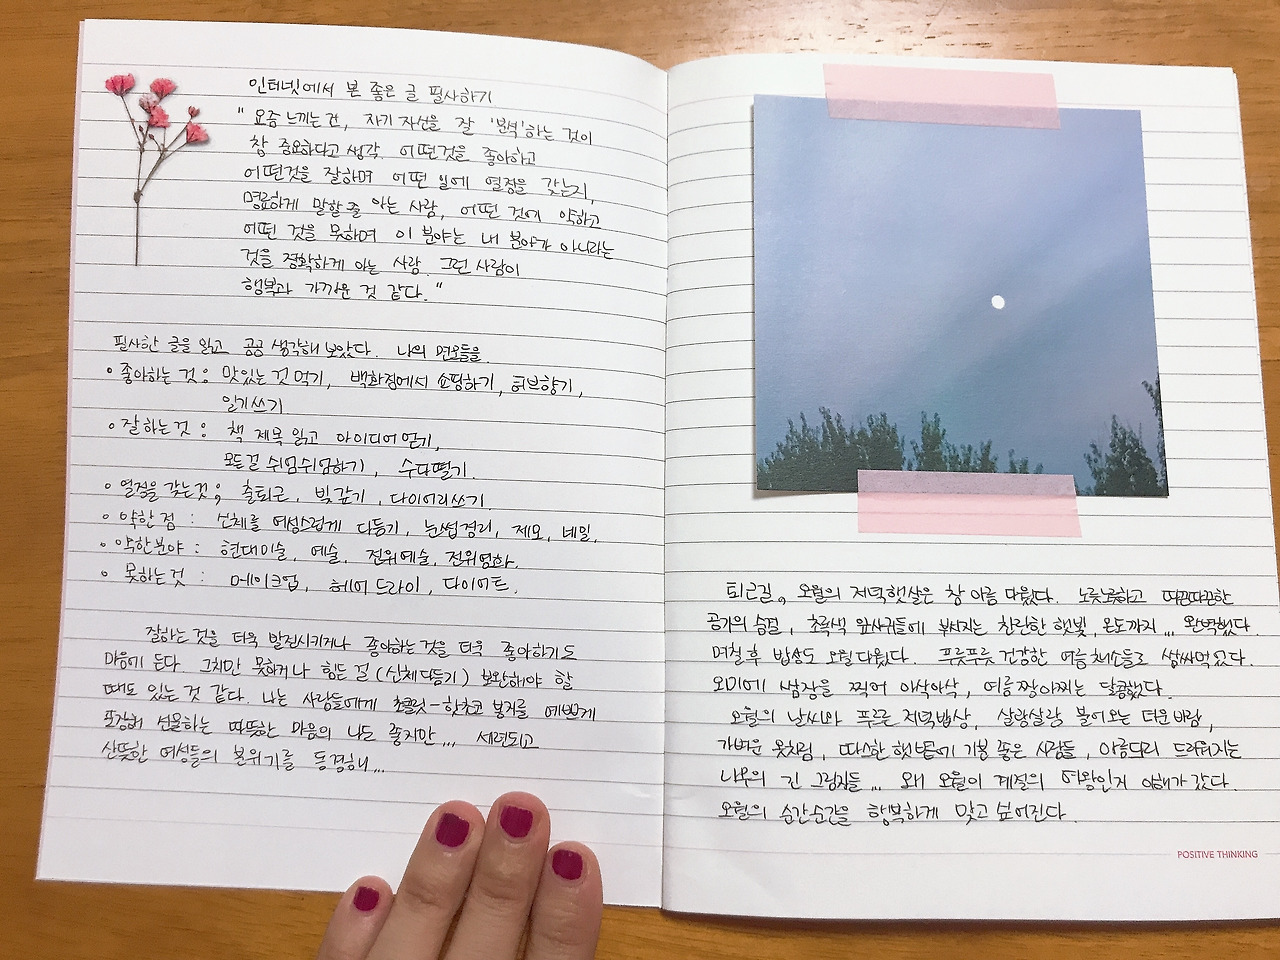 인터넷에서 본 좋은 글 필사하기
" 요즘 느끼는 건, 자기 자신을 잘 '분석'하는 것이
참 중요하다고 생각. 어떤것을 좋아하고
어떤것을 잘하며 어떤 일에 열정을 갖는지,
명료하게 말할 줄 아는 사람, 어떤 것에 약하고
어떤 것을 못하며 이 분야는 내 분야가 아니라는
것을 정확하게 아는 사람. 그런 사람이
행복과 가까운 것 같다. "
필사한 글을 읽고 곰곰 생각해 보았다. 나의 면모들을.
• 좋아하는 것 : 맛있는 것 먹기, 백화점에서 쇼핑하기, 허브향기,
일기쓰기
• 잘하는 것 : 책 제목 읽고 아이디어 얻기,
모든걸 쉬엄쉬엄하기, 수다떨기.
• 열정을 갖는것 : 출퇴근, 빚갚기, 다이어리쓰기.
• 약한 점 : 신체를 여성스럽게 다듬기, 눈썹정리, 제모, 네일.
• 약한분야 : 현대미술, 예술, 전위예술, 전위영화.
• 못하는것 : 메이크업, 헤어 드라이, 다이어트.
잘하는 것을 더욱 발전시키거나 좋아하는 것을 더욱 좋아하기도
마음에 든다. 그치만 못하거나 힘든 걸 (신체다듬기) 보완해야 할
때도 있는 것 같다. 나는 사람들에게 초콜릿-핫초코 봉지를 예쁘게
포장해 선물하는 따뜻한 마음의 나도 좋지만... 세련되고
산뜻한 여성들의 분위기를 동경해...
퇴근길, 오월의 저녁햇살은 참 아름다웠다. 노릇노릇하고 따끈따끈한
공기의 숨결, 초록색 잎사귀들에 부서지는 찬란한 햇빛, 온도까지... 완벽했다.
며칠 후 밥상도 오월다웠다. 푸릇푸릇 건강한 여름 채소들로 쌈싸먹었다.
오이에 쌈장을 찍어 아삭아삭, 여름 장아찌는 달콤했다.
오월의 날씨와 푸르른 저녁밥상, 살랑살랑 불어오는 더운 바람,
가벼운 옷차림, 따스한 햇볕에 기분 좋은 사람들, 아름드리 드리워지는
나무의 긴 그림자들... 왜 오월이 계절의 여왕인지 이해가 갔다.
오월의 순간순간을 행복하게 맞고 싶어진다.
POSITIVE THINKING